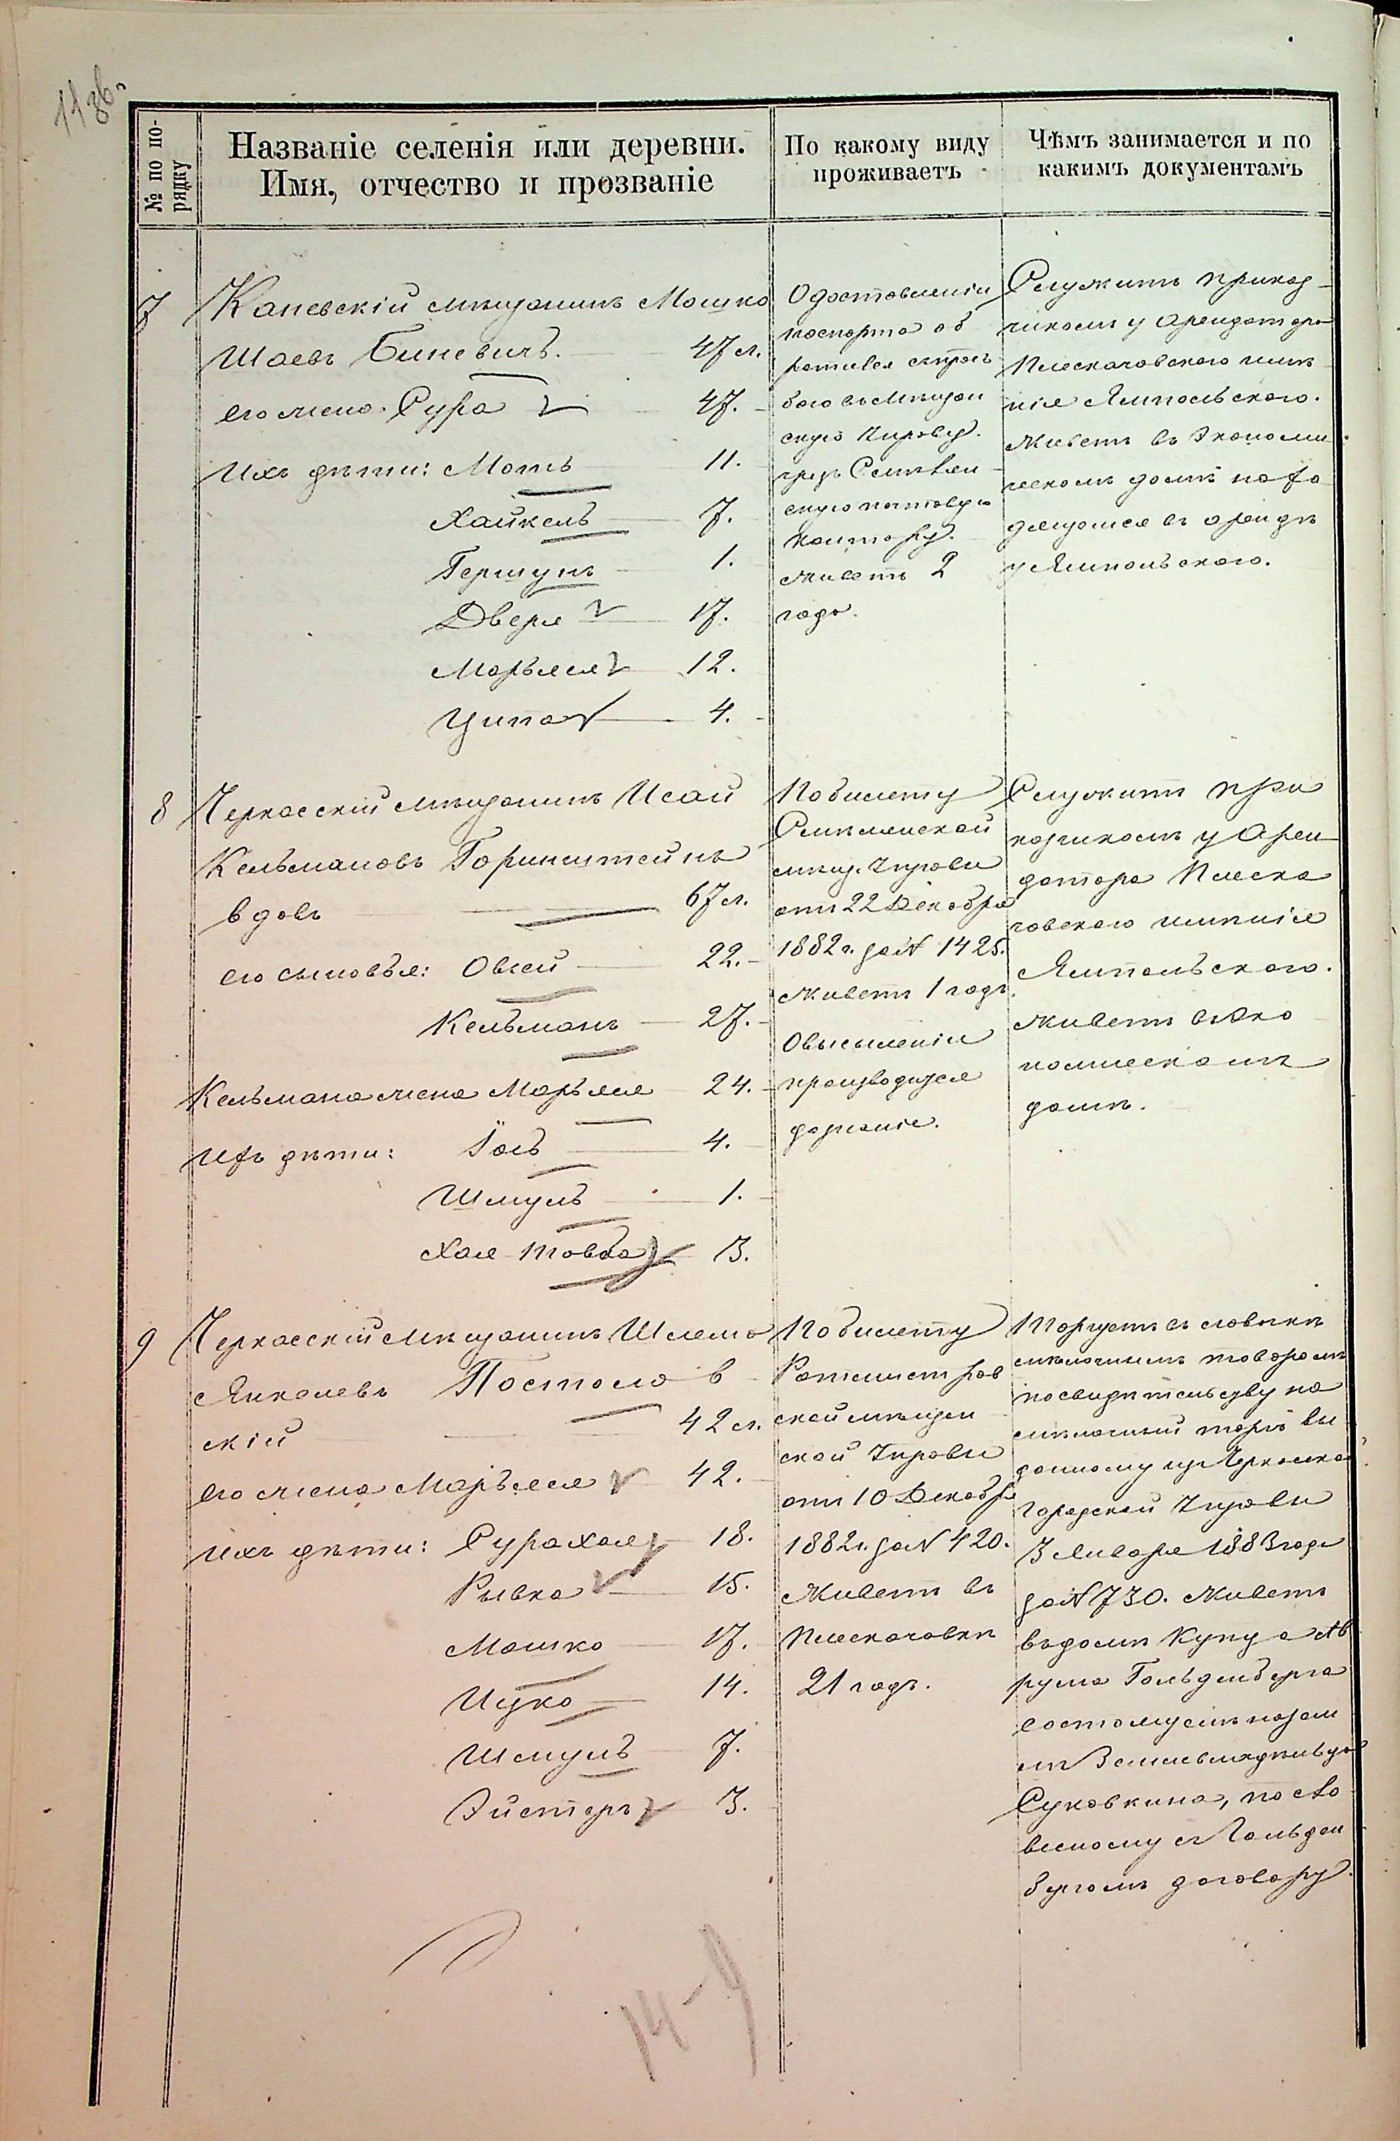 11 зв.
№ по по-
рядку
Названіе селенія или деревни.
Имя, отчество и прозваніе
По какому виду
проживаетъ
Чѣмъ занимается и по
какимъ документамъ
7
Каневскій мѣщанинъ Мошко
Шаевъ Биневичъ. 47 л.
его жена Сура 47.
Ихъ дѣти: Моть 11.
Хайкель 7.
Гершунъ 1.
Двера 17.
Марьяся 12.
Ципа 4.
О доставленіи
паспорта об
ратился съ прось
бою въ мѣщан
скую Управу.
чрезъ Смѣлян
скую почтовую
контору.
живетъ 2
года.
Служитъ прикаш
чикомъ у Арендатора
Плескачовского имѣ
нія Ямпольского.
живетъ въ Экономи
ческомъ домѣ нахо
дящомся въ арендѣ
у Ямпольского.
8
Черкасскій мѣщанинъ Исай
Кельмановъ Горинштейнъ
вдовъ 67 л.
его сыновья: Овсей 22.
Кельманъ 27.
Кельмана жена Марьяся 24.
Ихъ дѣти: Іоль 4.
Шмуль 1.
Хая Товба 3.
По билету
Смѣлянской
мѣщ. Управы
отъ 22 Декабря
1882 г. за № 1425.
живетъ 1 годъ.
О высыленіи
производится
дознаніе.
Служитъ при
кащикомъ у Арен
датора Плеска
човского имѣнія
Ямпольского.
живетъ въ Эко
номическомъ
домѣ.
9
Черкасскій мѣщанинъ Шлема
Янкелевъ Постолов
скій 42 л.
его жена Марьяся 42.
Ихъ дѣти: Сурахая 18.
Рывка 15.
Мошко 17.
Ицко 14.
Шмуль 7.
Эйстеръ 3.
По билету
Ротмистров
ской мѣщан
ской Управы
отъ 10 Декабря
1882 г. за № 420.
Живетъ въ
Плескачовкѣ
21 годъ.
Торгуетъ въ лавкѣ
мѣлочнымъ товаромъ
по свидѣтельству на
мѣлочный торгъ вы
данному изъ Черкаской
Городской Управы
3 Января 1883 года
за № 730. живетъ
въ домѣ Купца Ав
рума Гольденберга
состоящемъ на зем
лѣ Землевладѣльца
Суковкина, по сло
весному съ Гольден
бергомъ договору.
14-9